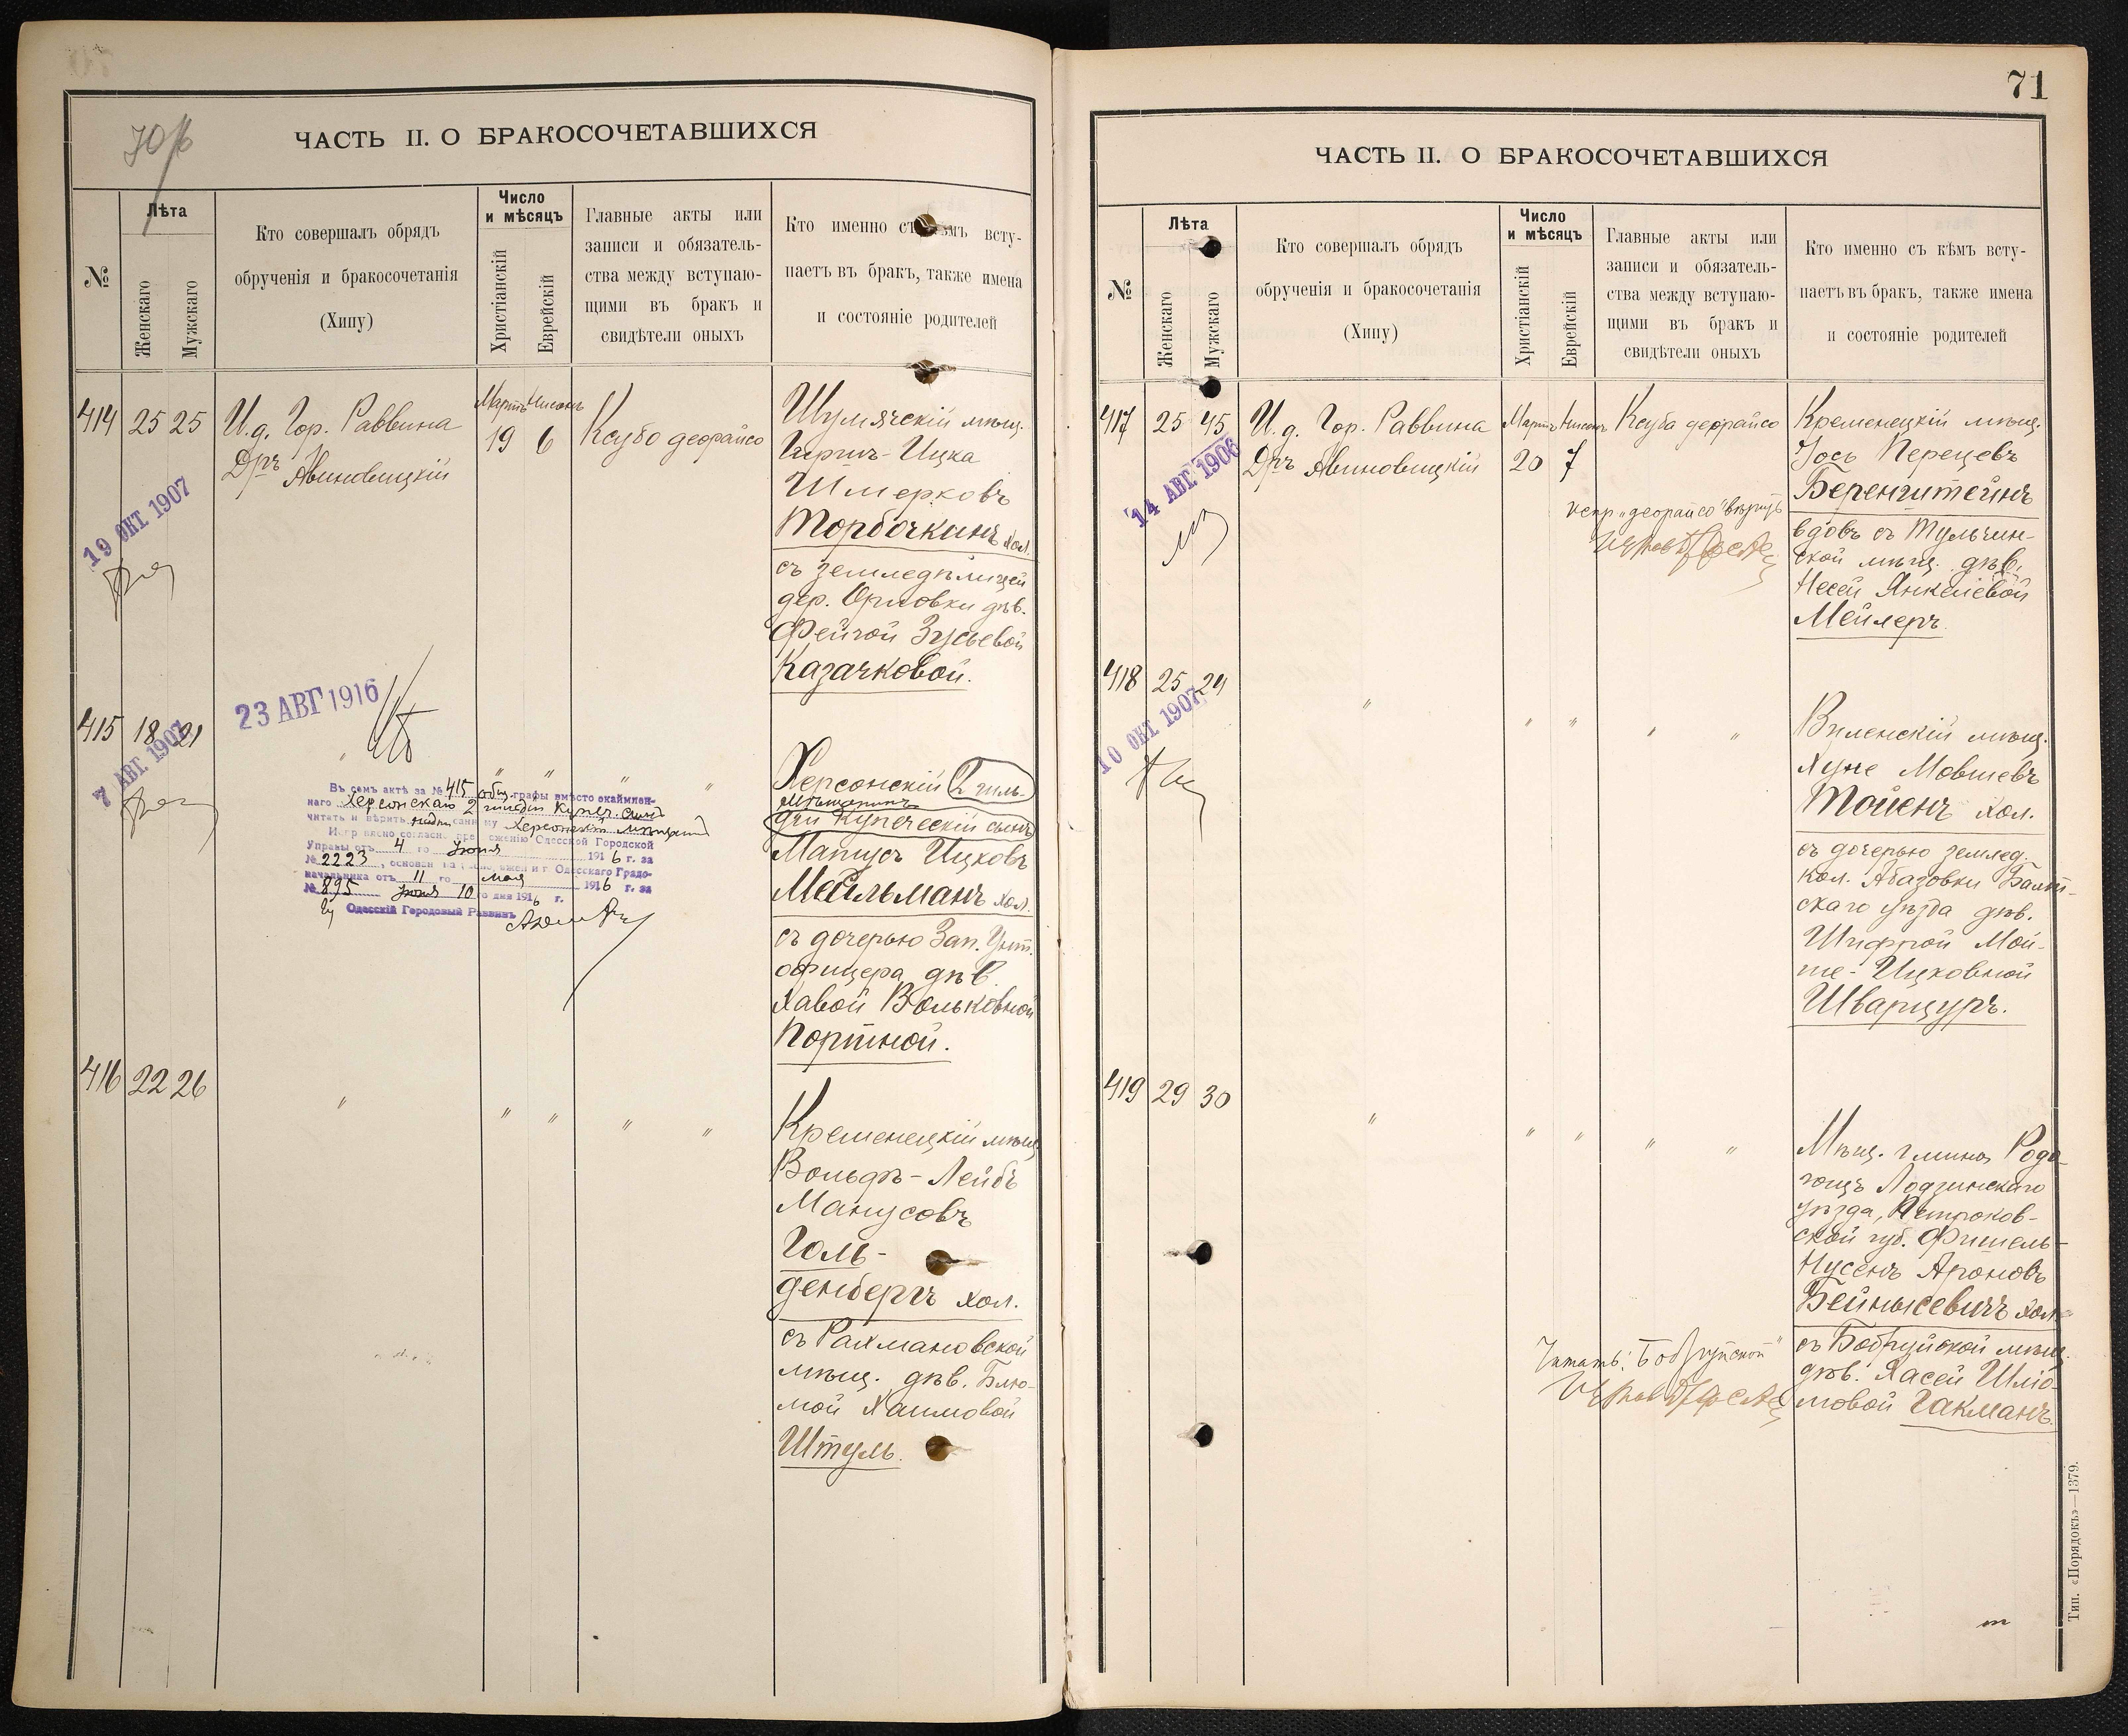 70/б
ЧАСТЬ II. О БРАКОСОЧЕТАВШИХСЯ
№
Лѣта
Женскаго
Мужскаго
Кто совершалъ обрядъ
обрученія и бракосочетанія
(Хипу)
Число
и мѣсяцъ
Христіанскій
Еврейскій
Главные акты или
записи и обязатель-
ства между вступаю-
щими въ бракъ и
свидѣтели оныхъ
Кто именно съ кѣмъ всту-
паетъ въ бракъ, также имена
и состояніе родителей
414 25 25
И.д. Гор. Раввина
Дръ Авиновицкій
Мартъ Нисонъ
19 6
Ксубо деорайсо
Шумячскій мѣщ.
Гиршъ-Ицка
Шмерковъ
Торбочкинъ хол.
съ земледѣлицей
дер. Орловки дѣв.
Фейгой Зусьевой
Казачковой.
19 ОКТ 1907
415 18 21
7 АВГ. 1907
23 АВГ 1916
" " " " "
Херсонскій 2 гиль-
мѣщанинъ
діи купеческій сынъ
Манусъ Ицковъ
Мейльманъ хол.
съ дочерью Зап. Унт.
офицера дѣв.
Хавой Вольковной
Портной.
Въ семъ актѣ за № 415 общ. графы вмѣсто окаймлен-
наго Херсонскаго 2 гильдіи купеч. сына
читать и вѣрить надписанному Херсонскій мѣщанинъ
Исправлено согласно предложенію Одесской Городской
Управы отъ 4 го Іюня 1916 г. за
№ 2223, основан. на предложеніи г. Одесскаго Градо-
начальника отъ 11 го мая 1916 г. за
№ 895 Іюня 10 го дня 1916 г.
Одесскій Городовый Раввинъ
416 22 26
" " " " "
Кременецкій мѣщ.
Вольфъ-Лейбъ
Манусовъ
Голь-
денбергъ хол.
съ Рахмановской
мѣщ. дѣв. Блю-
мой Хаимовой
Штуль.
71
ЧАСТЬ II. О БРАКОСОЧЕТАВШИХСЯ
№
Лѣта
Женскаго
Мужскаго
Кто совершалъ обрядъ
обрученія и бракосочетанія
(Хипу)
Число
и мѣсяцъ
Христіанскій
Еврейскій
Главные акты или
записи и обязатель-
ства между вступаю-
щими въ бракъ и
свидѣтели оныхъ
Кто именно съ кѣмъ всту-
паетъ въ бракъ, также имена
и состояніе родителей
417 25 45
И.д. Гор. Раввина
Дръ Авиновицкій
Мартъ Нисонъ
20 7
Ксуба деорайсо
испр. "деорайсо" вѣрить
Кременецкій мѣщ.
Іось Перецевъ
Беренштейнъ
вдовъ съ Тульчин-
ской мѣщ. дѣв.
Несей Янкелевой
Мейлеръ
14 АВГ 1906
418 25 24
10 ОКТ 1907
" " " " "
Виленскій мѣщ.
Хуне Мовшевъ
Тойенъ хол.
съ дочерью землед.
кол. Абазовки Балт-
скаго уѣзда дѣв.
Шифрой Мой-
ше-Ицковной
Шварцуръ.
419 29 30
" " " " "
Мѣщ. гмины Радо-
гощъ Лодзинскаго
уѣзда, Петроков-
ской губ. Фишель-
Нусенъ Ароновъ
Бейнысевичъ хол.
съ Бобруйской мѣщ.
дѣв. Хасей Шлю-
мовой Гакманъ.
Читать: "Бобруйской"
Тип. «Порядокъ»—1379.